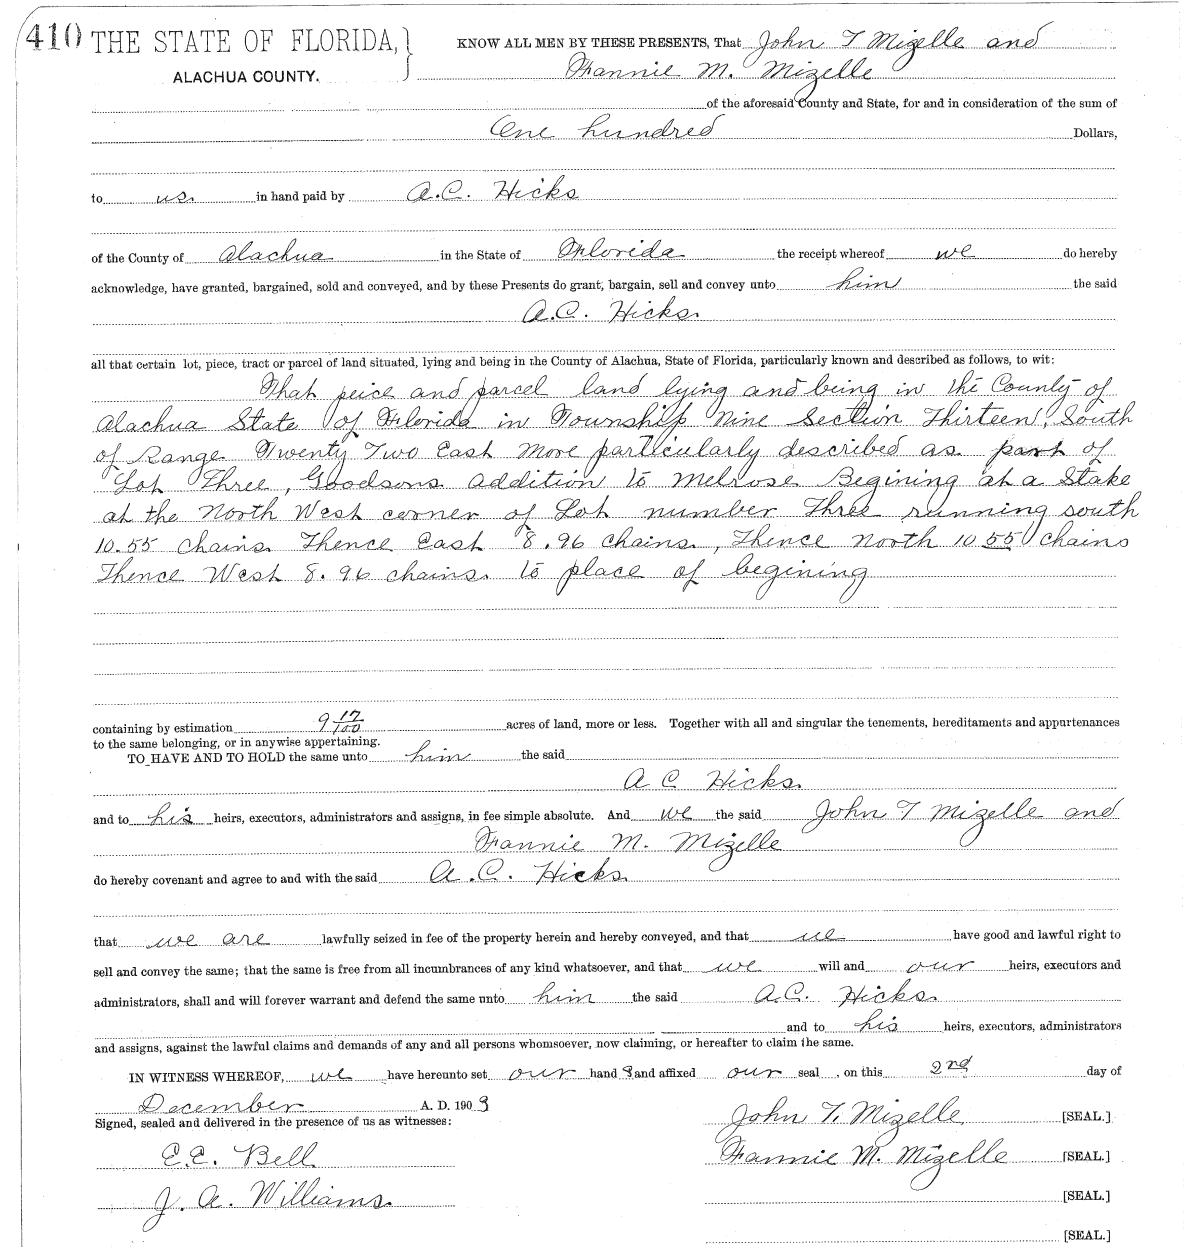 410 THE STATE OF FLORIDA, } KNOW ALL MEN BY THESE PRESENTS, That John T Mizelle and
ALACHUA COUNTY. Fannie M. Mizelle
of the aforesaid County and State, for and in consideration of the sum of
One hundred Dollars,
to us. in hand paid by A.C. Hicks
of the County of Alachua in the State of Florida the receipt whereof we do hereby
acknowledge, have granted, bargained, sold and conveyed, and by these Presents do grant, bargain, sell and convey unto him the said
A.C. Hicks.
all that certain lot, piece, tract or parcel of land situated, lying and being in the County of Alachua, State of Florida, particularly known and described as follows, to wit:
That peice and parcel land lying and being in the County of
Alachua State of Florida in Township Nine Section Thirteen, South
of Range Twenty Two East More particularly described as part of
Lot Three, Goodsons addition to Melrose Begining at a Stake
at the North West corner of Lot number Three running south
10.55 chains. Thence East 8.96 chains, Thence North 10 55 chains
Thence West 8.96 chains. to place of begining
containing by estimation 9 17/100 acres of land, more or less. Together with all and singular the tenements, hereditaments and appurtenances
to the same belonging, or in anywise appertaining.
TO HAVE AND TO HOLD the same unto him the said
A C Hicks.
and to his heirs, executors, administrators and assigns, in fee simple absolute. And we the said John T Mizelle and
Fannie M. Mizelle
do hereby covenant and agree to and with the said A.C. Hicks.
that we are lawfully seized in fee of the property herein and hereby conveyed, and that we have good and lawful right to
sell and convey the same; that the same is free from all incumbrances of any kind whatsoever, and that we will and our heirs, executors and
administrators, shall and will forever warrant and defend the same unto him the said A.C. Hicks.
and to his heirs, executors, administrators
and assigns, against the lawful claims and demands of any and all persons whomsoever, now claiming, or hereafter to claim the same.
IN WITNESS WHEREOF, we have hereunto set our hand s and affixed our seal , on this 2nd day of
December A. D. 1903
Signed, sealed and delivered in the presence of us as witnesses: John T. Mizelle [SEAL.]
E.E. Bell Fannie M. Mizelle [SEAL.]
J. A. Williams. [SEAL.]
[SEAL.]